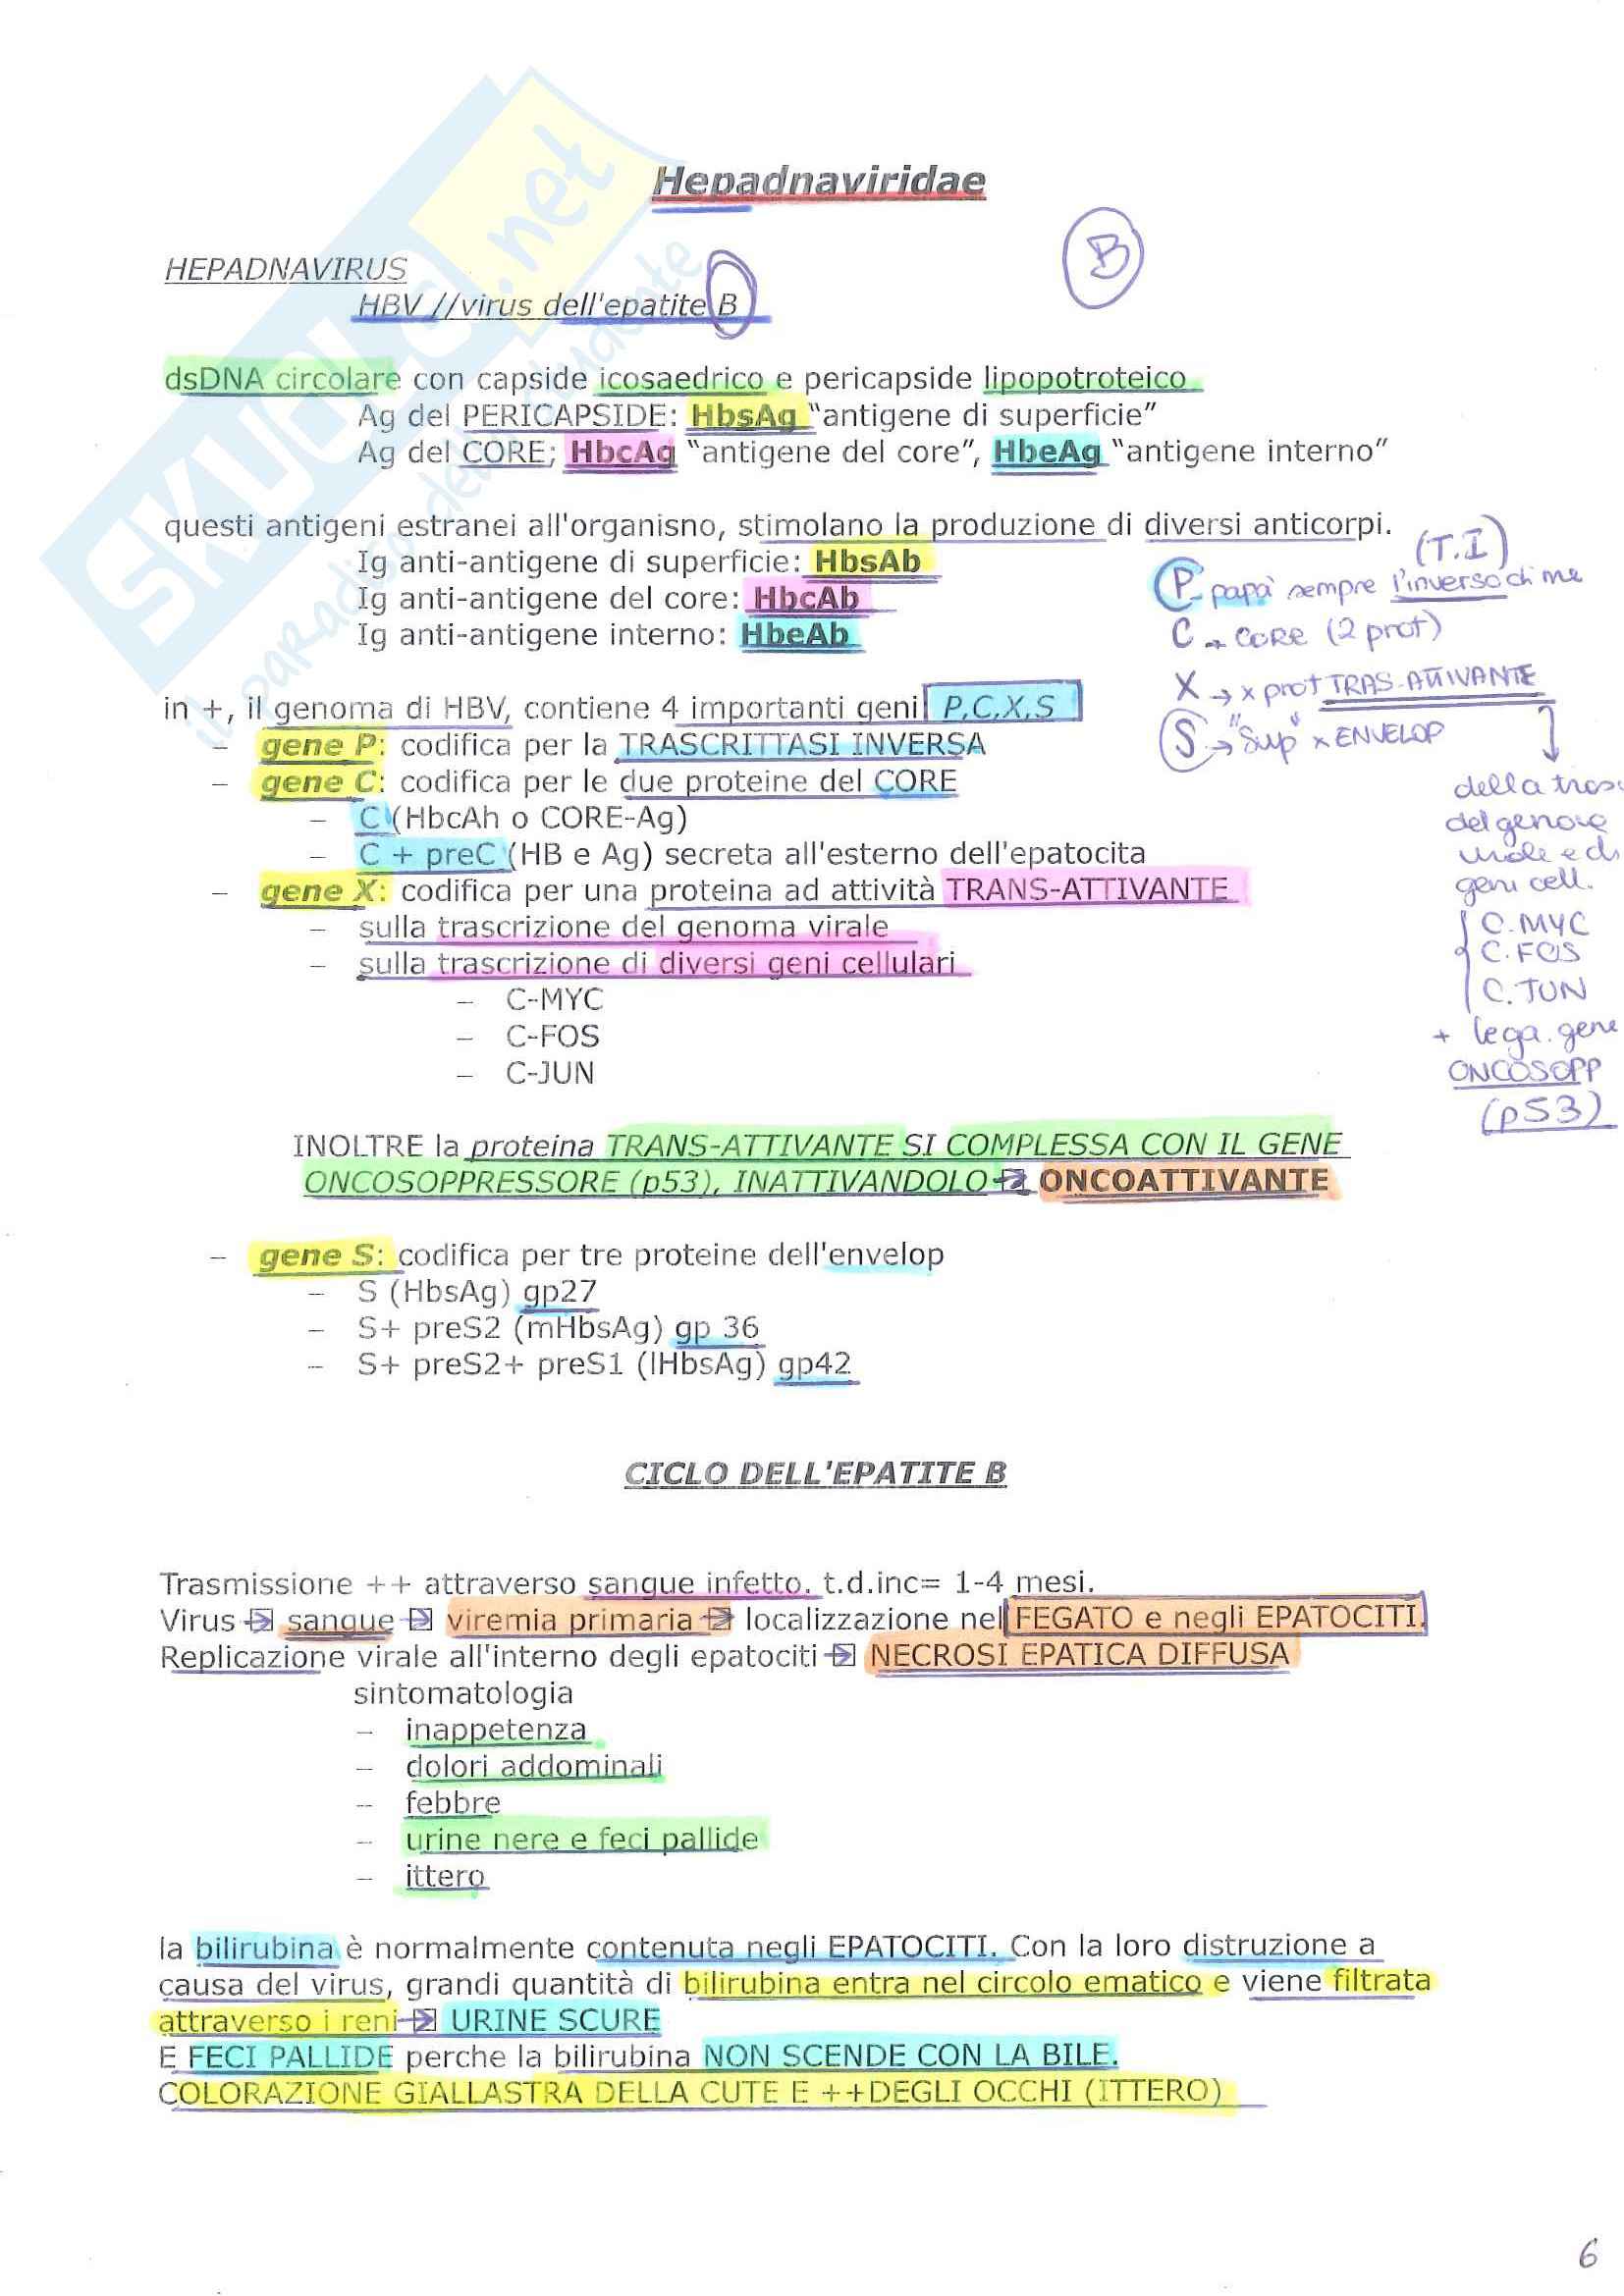 SKUOLA.net
il paradiso dello studente
Hepadnaviridae
B
HEPADNAVIRUS
HBV //virus dell'epatite B
dsDNA circolare con capside icosaedrico e pericapside lipopotroteico
Ag del PERICAPSIDE: HbsAg “antigene di superficie”
Ag del CORE; HbcAg “antigene del core”, HbeAg “antigene interno”
questi antigeni estranei all'organisno, stimolano la produzione di diversi anticorpi.
Ig anti-antigene di superficie: HbsAb
Ig anti-antigene del core: HbcAb
Ig anti-antigene interno: HbeAb
(T.I)
P papà sempre l'inverso di me
C → CORE (2 prot)
X → x prot TRAS-ATTIVANTE
S → "Sup" x ENVELOP
della tras
del genoma
virale e di
geni cell.
C.MYC
C.FOS
C.JUN
+ lega gene
ONCOSOPP
(p53)
in +, il genoma di HBV, contiene 4 importanti geni P,C,X,S
– gene P: codifica per la TRASCRITTASI INVERSA
– gene C: codifica per le due proteine del CORE
– C (HbcAh o CORE-Ag)
– C + preC (HB e Ag) secreta all'esterno dell'epatocita
– gene X: codifica per una proteina ad attività TRANS-ATTIVANTE
– sulla trascrizione del genoma virale
– sulla trascrizione di diversi geni cellulari
– C-MYC
– C-FOS
– C-JUN
INOLTRE la proteina TRANS-ATTIVANTE SI COMPLESSA CON IL GENE
ONCOSOPPRESSORE (p53), INATTIVANDOLO → ONCOATTIVANTE
– gene S: codifica per tre proteine dell'envelop
– S (HbsAg) gp27
– S+ preS2 (mHbsAg) gp 36
– S+ preS2+ preS1 (lHbsAg) gp42
CICLO DELL'EPATITE B
Trasmissione ++ attraverso sangue infetto. t.d.inc= 1-4 mesi.
Virus → sangue → viremia primaria → localizzazione nel FEGATO e negli EPATOCITI.
Replicazione virale all'interno degli epatociti → NECROSI EPATICA DIFFUSA
sintomatologia
– inappetenza
– dolori addominali
– febbre
– urine nere e feci pallide
– ittero
la bilirubina è normalmente contenuta negli EPATOCITI. Con la loro distruzione a
causa del virus, grandi quantità di bilirubina entra nel circolo ematico e viene filtrata
attraverso i reni → URINE SCURE
E FECI PALLIDE perche la bilirubina NON SCENDE CON LA BILE.
COLORAZIONE GIALLASTRA DELLA CUTE E ++DEGLI OCCHI (ITTERO)
6